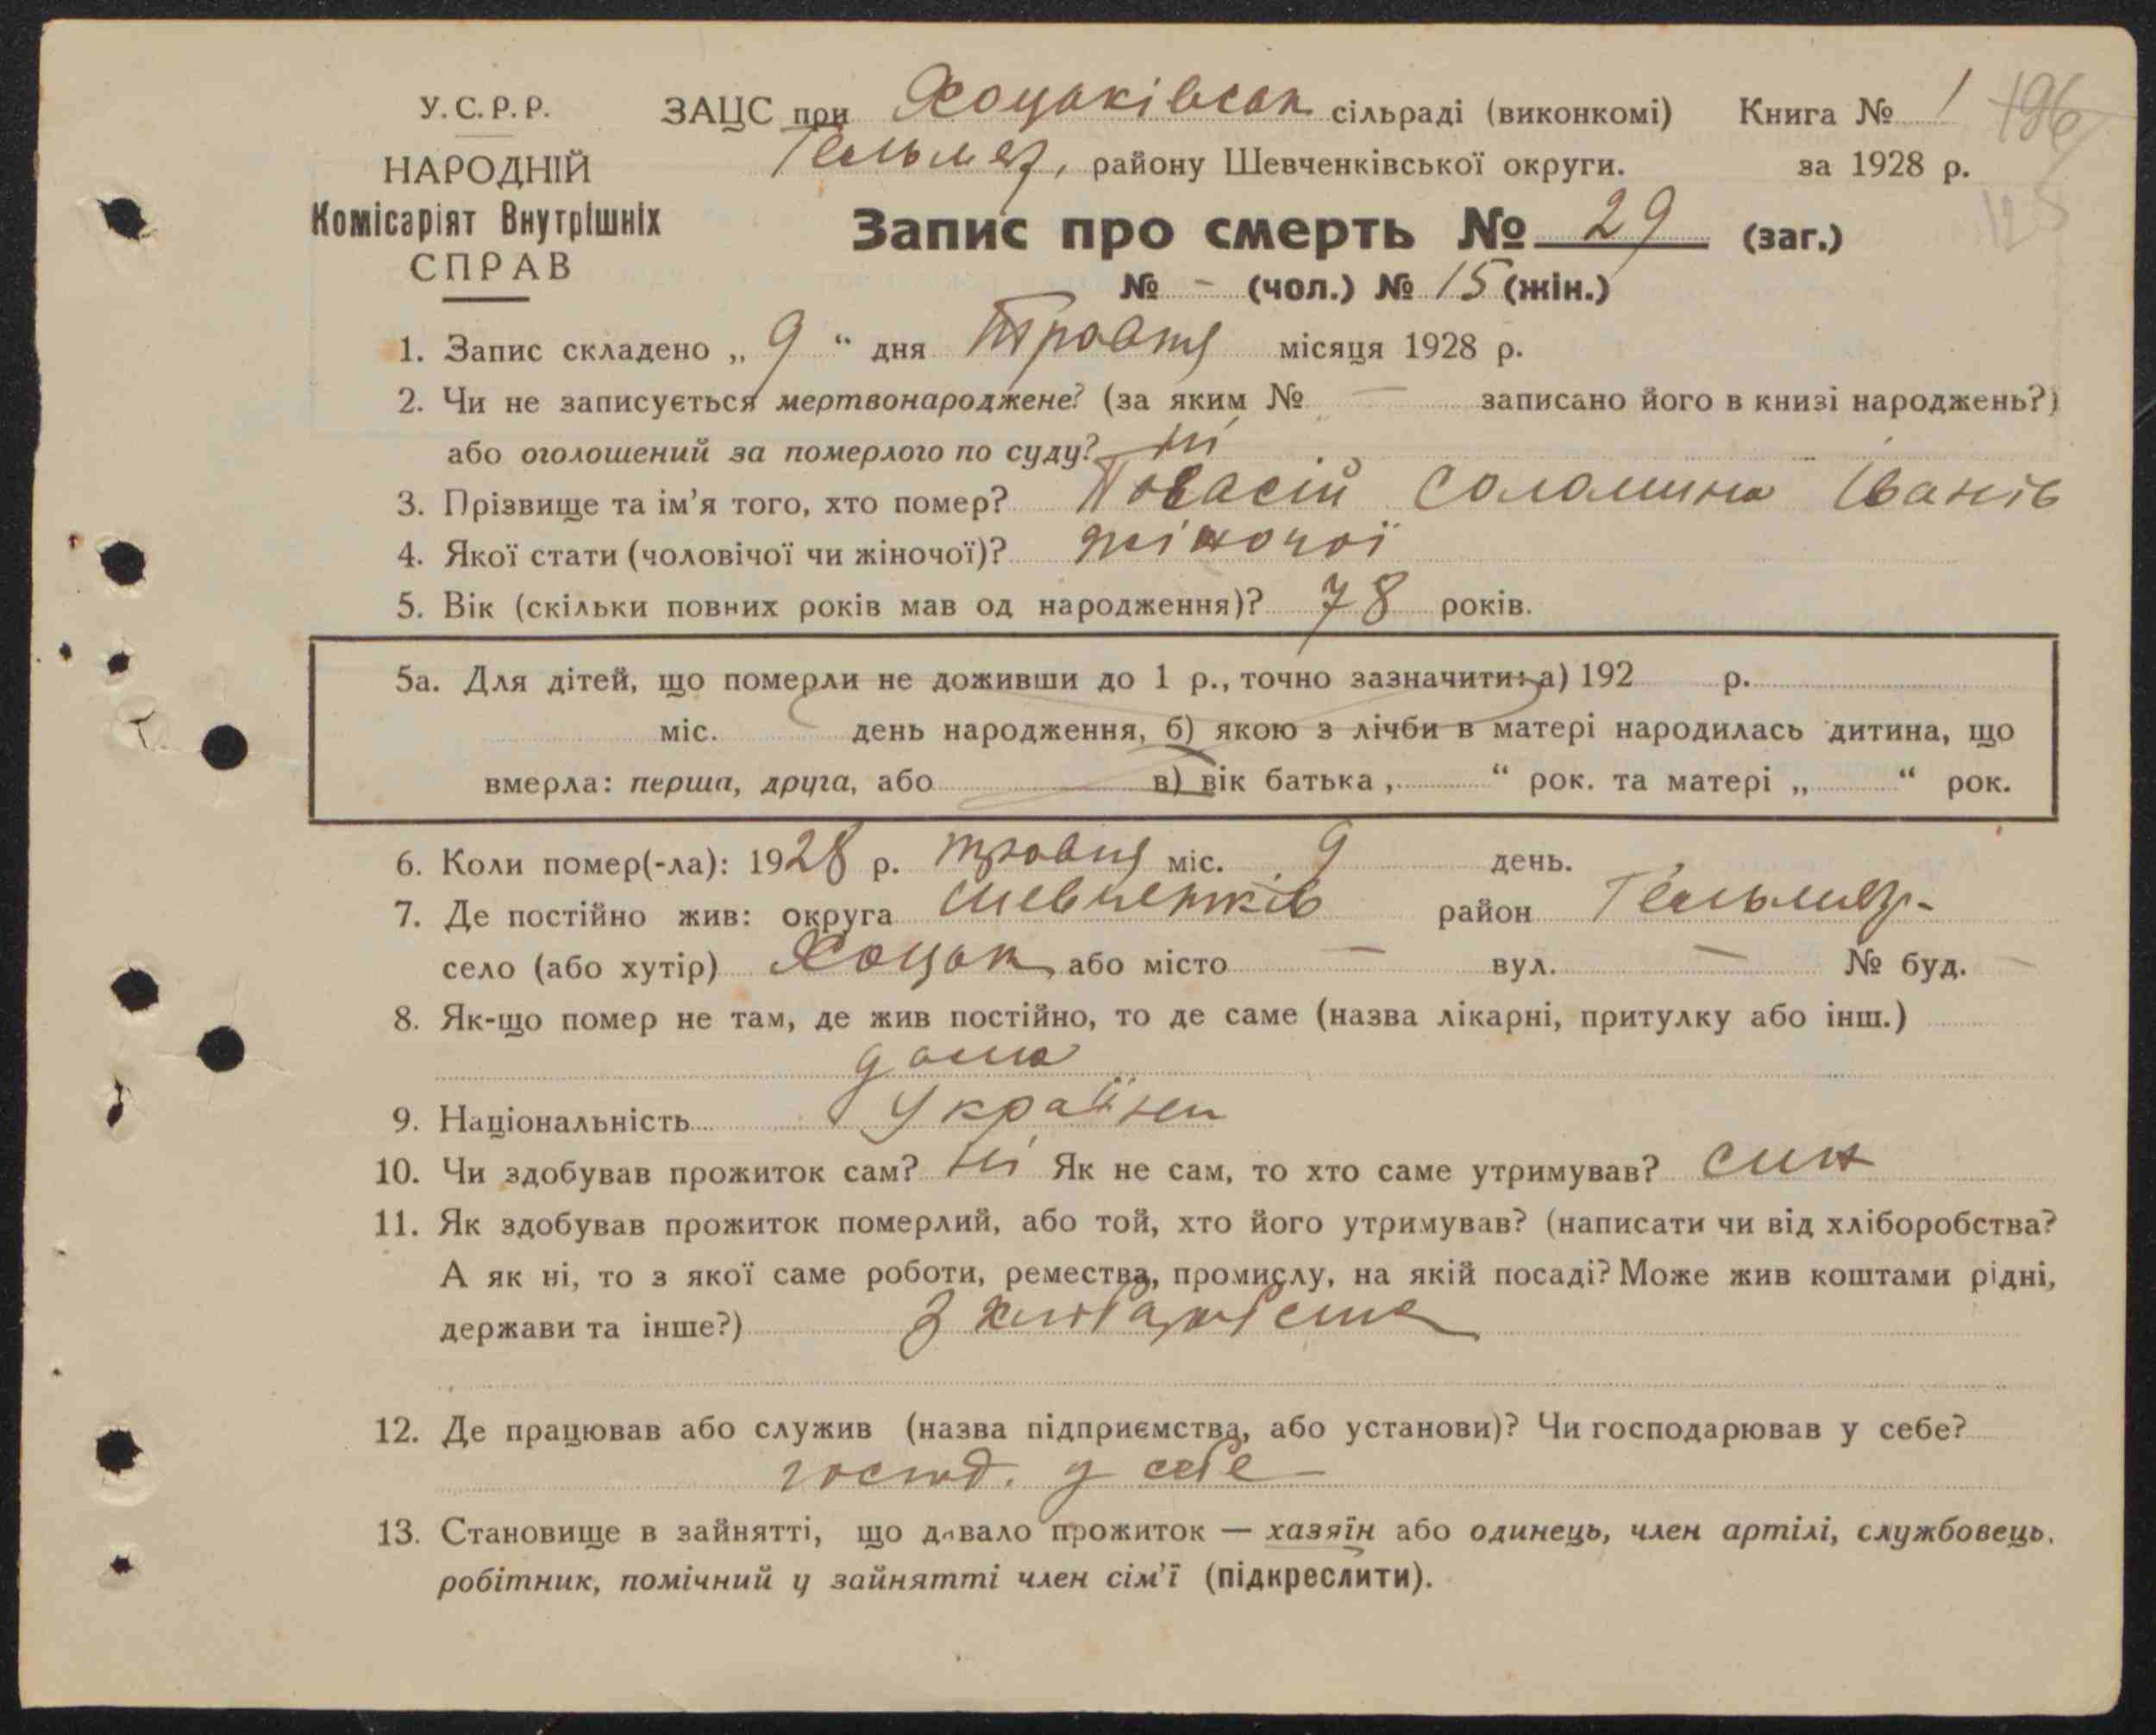 У.С.Р.Р. ЗАЦС при Хоцаківськ сільраді (виконкомі) Книга № 1 196
НАРОДНІЙ Гельмяз, району Шевченківської округи. за 1928 р.
Комісаріят Внутрішніх
СПРАВ
Запис про смерть № 29 (заг.)
№ - (чол.) № 15 (жін.)
1. Запис складено „ 9 “ дня Травня місяця 1928 р.
2. Чи не записується мертвонароджене? (за яким № — записано його в книзі народжень?)
або оголошений за померлого по суду? ні
3. Прізвище та ім’я того, хто помер? Соломина Іванів
4. Якої стати (чоловічої чи жіночої)? жіночої
5. Вік (скільки повних років мав од народження)? 78 років.
5а. Для дітей, що померли не доживши до 1 р., точно зазначити: а) 192 р.
міс. день народження, б) якою з лічби в матері народилась дитина, що
вмерла: перша, друга, або в) вік батька , “ рок. та матері „ “ рок.
6. Коли помер(-ла): 1928 р. травня міс. 9 день.
7. Де постійно жив: округа Шевченків район Гельмяз-
село (або хутір) Хоцак, або місто — вул. — № буд. —
8. Як-що помер не там, де жив постійно, то де саме (назва лікарні, притулку або інш.)
дома
9. Національність Українец
10. Чи здобував прожиток сам? ні Як не сам, то хто саме утримував? син
11. Як здобував прожиток померлий, або той, хто його утримував? (написати чи від хліборобства?
А як ні, то з якої саме роботи, ремества, промислу, на якій посаді? Може жив коштами рідні,
держави та інше?) З
12. Де працював або служив (назва підприємства, або установи)? Чи господарював у себе?
госпд. у себе
13. Становище в зайнятті, що давало прожиток — хазяїн або одинець, член артілі, службовець,
робітник, помічний у зайнятті член сім’ї (підкреслити).